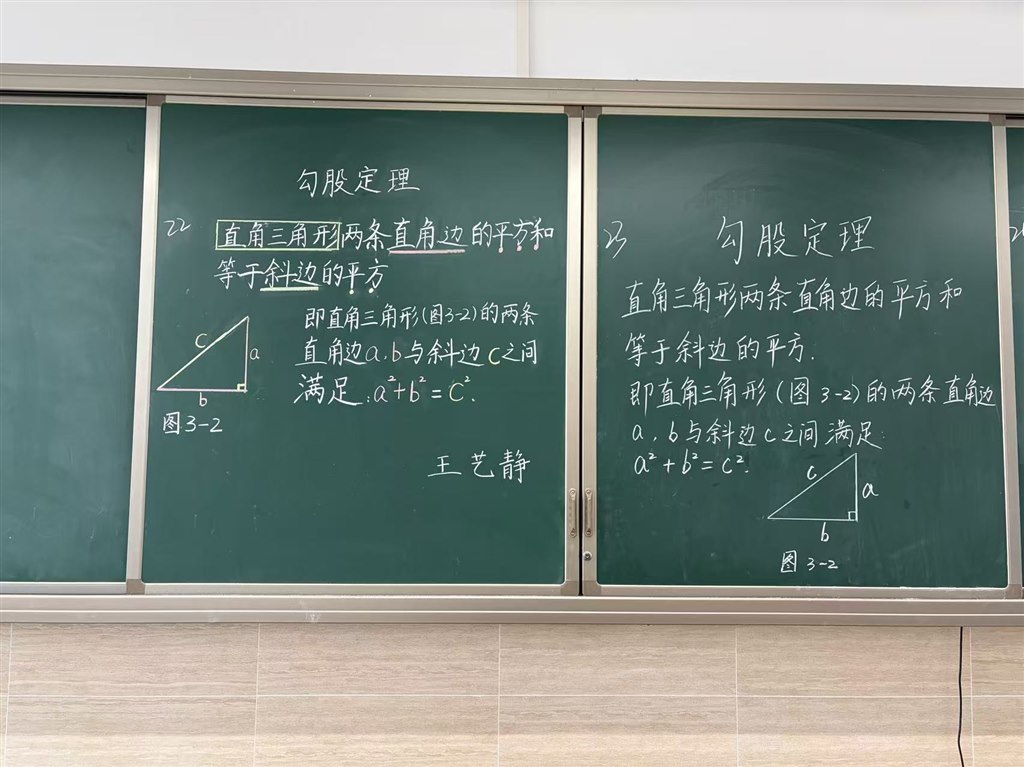 勾股定理
22
直角三角形两条直角边的平方和
等于斜边的平方
即直角三角形(图3-2)的两条
直角边a.b与斜边c之间
满足:a²+b²=c².
c
a
b
图3-2
王艺静
23
勾股定理
直角三角形两条直角边的平方和
等于斜边的平方.
即直角三角形(图3-2)的两条直角边
a.b与斜边c之间满足
a²+b²=c².
c
a
b
图3-2